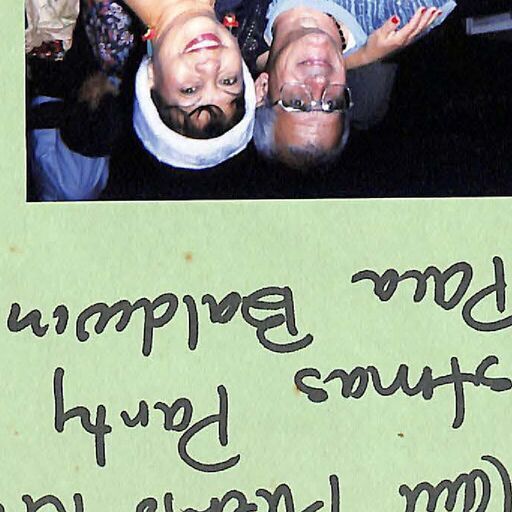 Maui Puerto Ri
stmas Party
Paia Baldwin